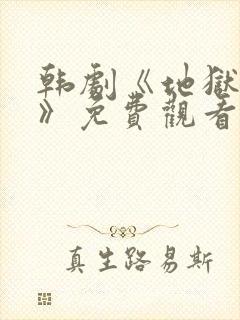 韩劇《地獄
》免費觀看
真生路易斯